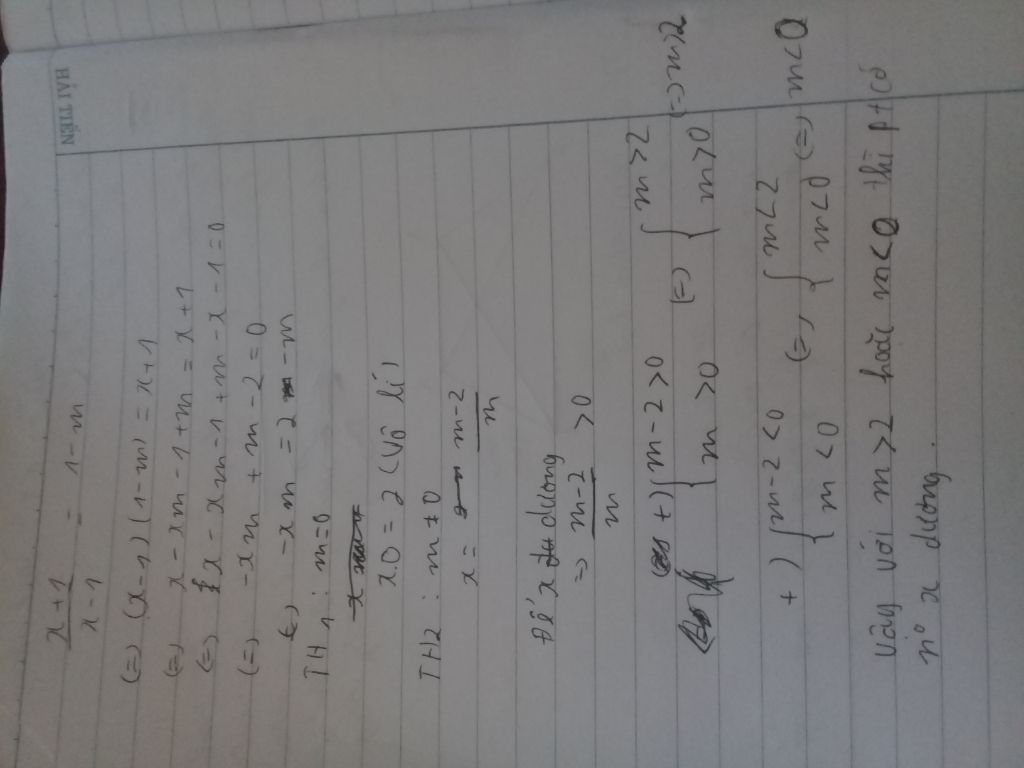 HẢI TIẾN
x+1/x-1 = 1-m
(=) (x-1)(1-m) = x+1
(=) x - xm - 1 + m = x + 1
(=) x - xm - 1 + m - x - 1 = 0
(=) -xm + m - 2 = 0
(=) -xm = 2 - m
TH1: m=0
x0 = 2 (vô lí)
TH2: m ≠ 0
x = m-2/m
Để x dương
=> m-2/m > 0
+) { m-2 > 0 (=) { m > 2 (=) m>2
{ m > 0 { m > 0
+) { m-2 < 0 (=) { m < 2 (=) m<0
{ m < 0 { m < 0
Vậy với m > 2 hoặc m < 0 thì pt có
n⁰ x dương.